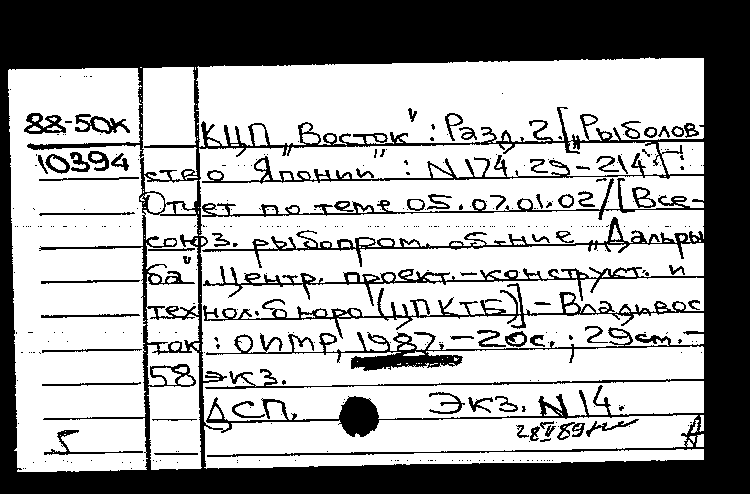 88-50К
10394
КЦП „Восток" : Разд. 2. [„Рыболов-
ство Японии" : N 174. 29-214] :
Отчет по теме 05.07.01.02 / [Все-
союз. рыбопром. об-ние „Дальры
ба". Центр. проект.-конструкт. и
технол. бюро (ЦПКТБ)]. - Владивос
ток : ОИМР, 1987. - 20с. ; 29см. -
58 экз.
ДСП. Экз. N 14.
5